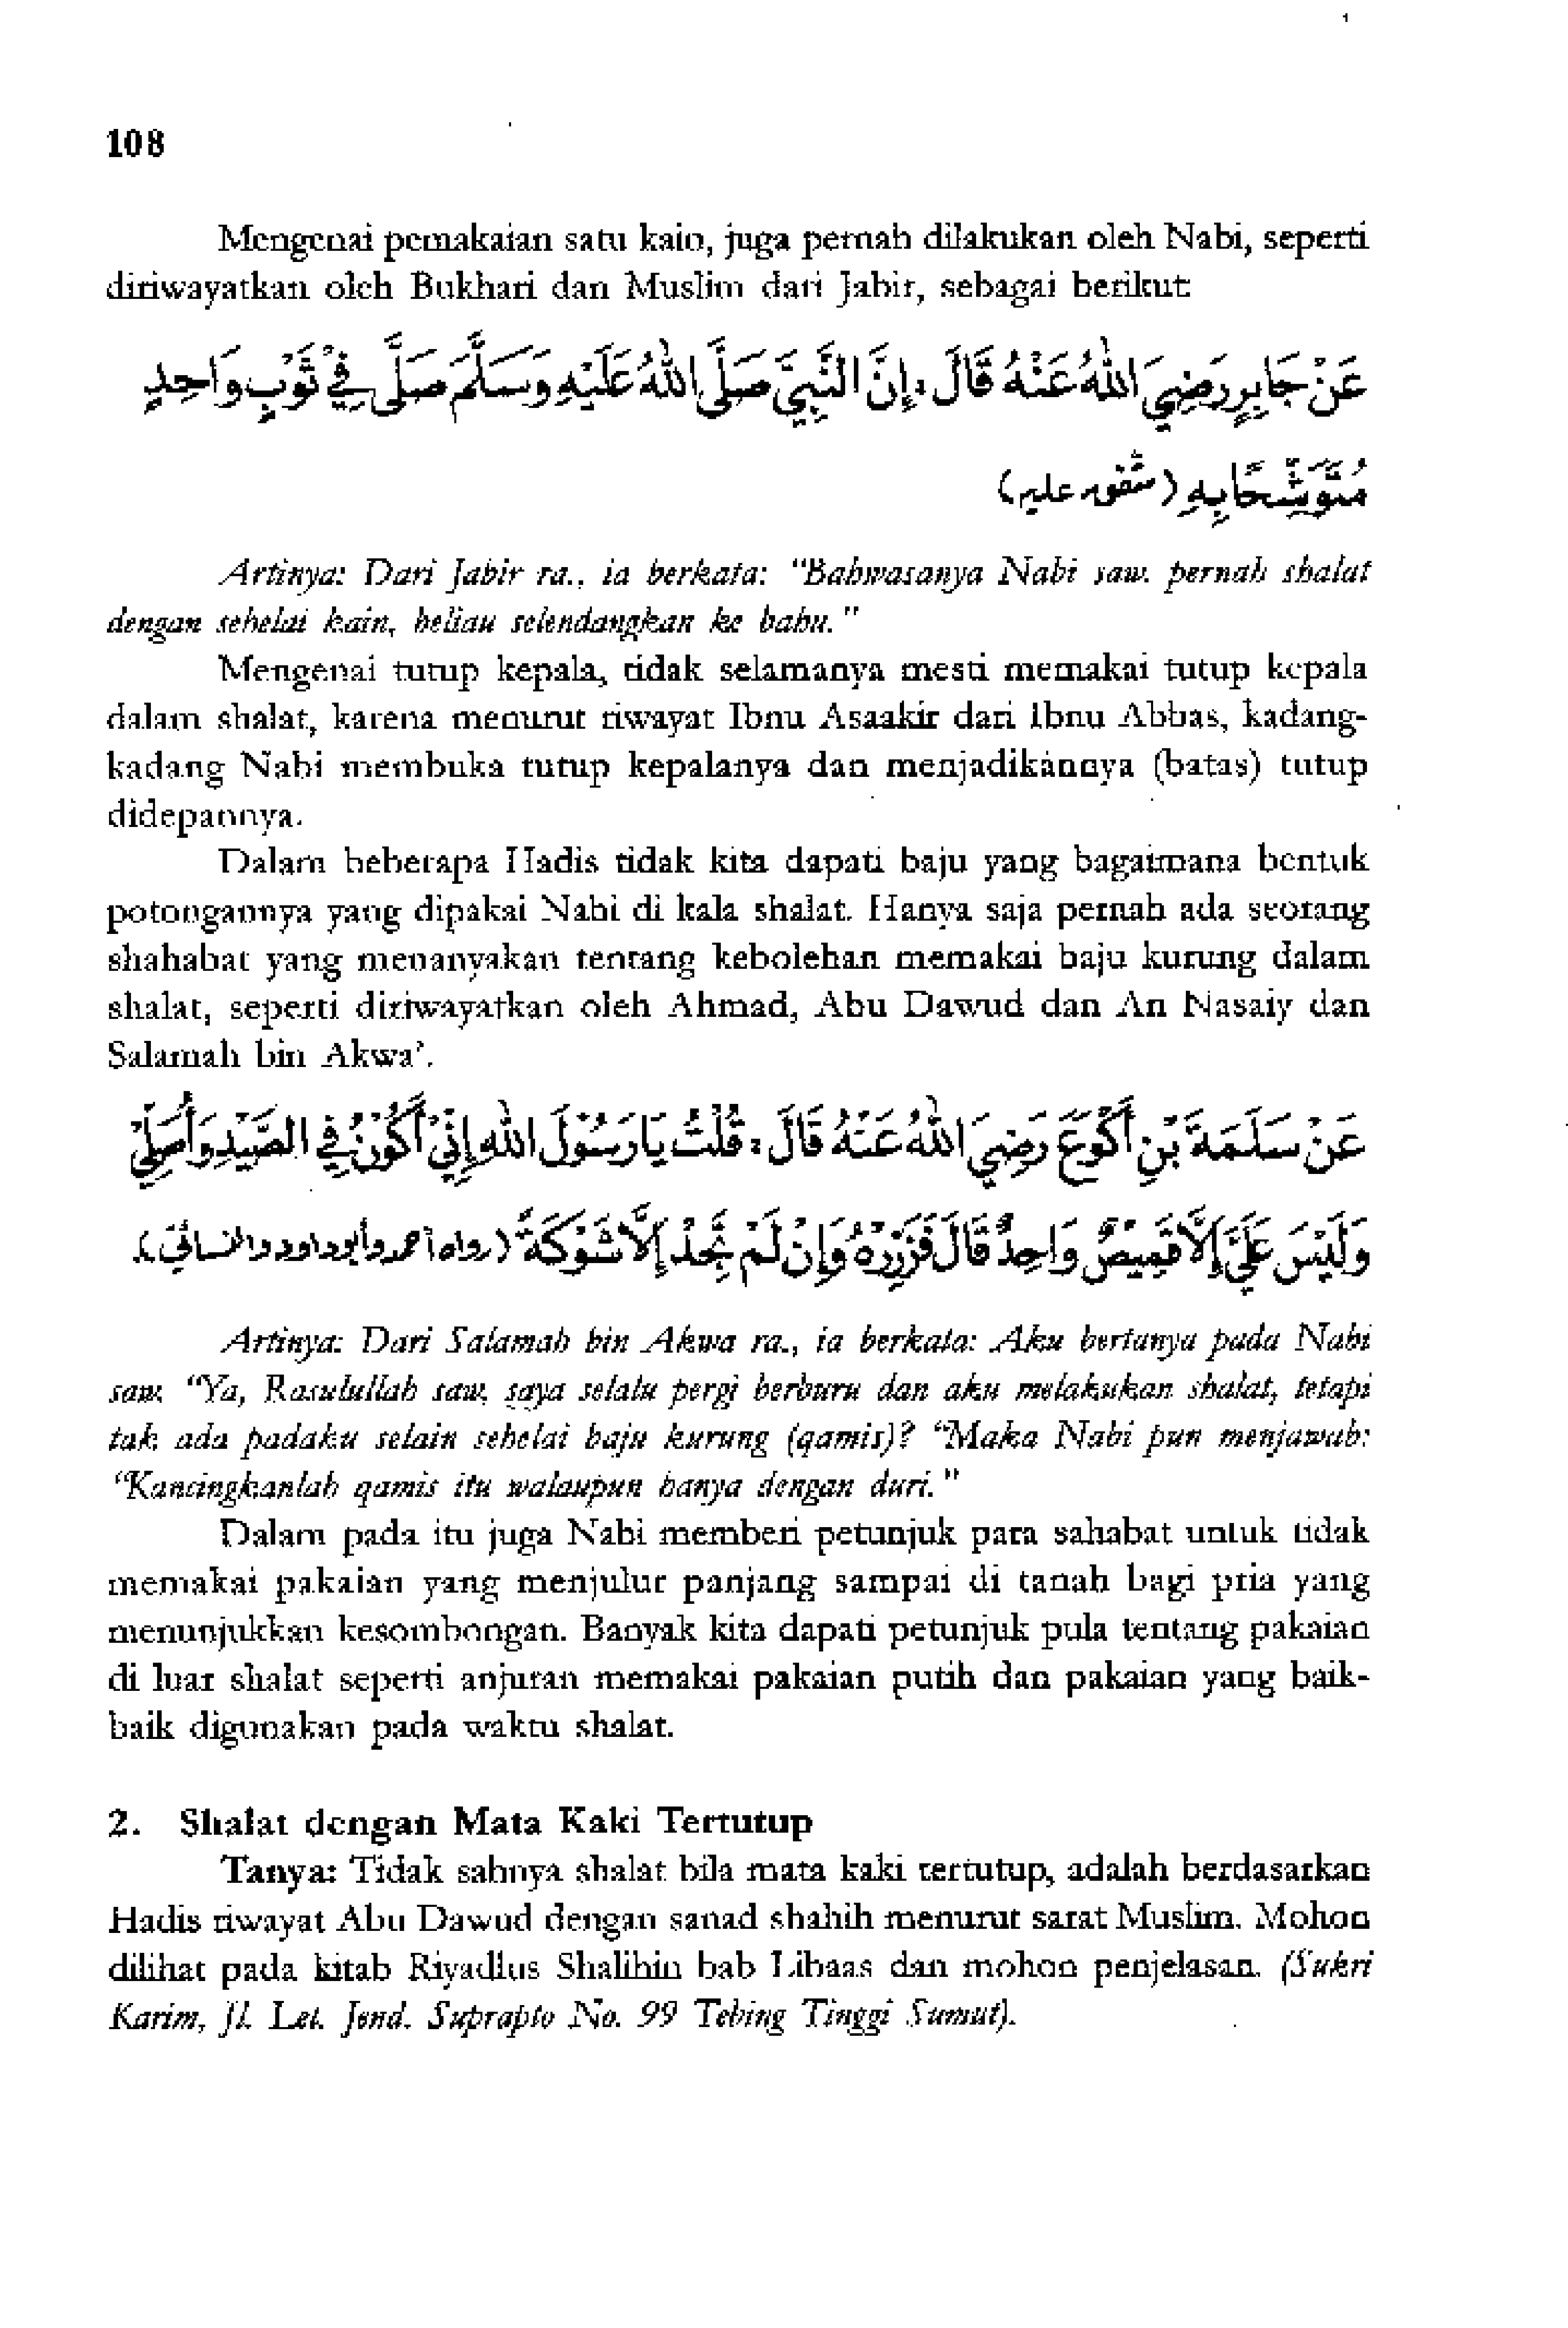 108
Mengenai pemakaian satu kain, juga pernah dilakukan oleh Nabi, seperti
diriwayatkan oleh Bukhari dan Muslim dari Jabir, sebagai berikut:
عَنْ جَابِرٍ رَضِيَ اللهُ عَنْهُ قَالَ : إِنَّ النَّبِيَّ صَلَّى اللهُ عَلَيْهِ وَسَلَّمَ صَلَّى فِيْ ثَوْبٍ وَاحِدٍ
مُتَوَشِّحًا بِهِ (متفق عليه)
Artinya: Dari Jabir ra., ia berkata: "Bahwasanya Nabi saw. pernah shalat
dengan sehelai kain, beliau selendangkan ke bahu."
Mengenai tutup kepala, tidak selamanya mesti memakai tutup kepala
dalam shalat, karena menurut riwayat Ibnu Asaakir dari Ibnu Abbas, kadang-
kadang Nabi membuka tutup kepalanya dan menjadikannya (batas) tutup
didepannya.
Dalam beberapa Hadis tidak kita dapati baju yang bagaimana bentuk
potongannya yang dipakai Nabi di kala shalat. Hanya saja pernah ada seorang
shahabat yang menanyakan tentang kebolehan memakai baju kurung dalam
shalat, seperti diriwayatkan oleh Ahmad, Abu Dawud dan An Nasaiy dan
Salamah bin Akwa'.
عَنْ سَلَمَةَ بْنِ أَكْوَعَ رَضِيَ اللهُ عَنْهُ قَالَ : قُلْتُ يَا رَسُوْلَ اللهِ إِنِّيْ أَكُوْنُ فِي الصَّيْدِ وَأُصَلِّيْ
وَلَيْسَ عَلَيَّ إِلاَّ قَمِيْصٌ وَاحِدٌ قَالَ فَزُرَّهُ وَإِنْ لَمْ تَجِدْ إِلاَّ شَوْكَةً (رواه أحمد وأبو داود والنسائيّ).
Artinya: Dari Salamah bin Akwa ra., ia berkata: Aku bertanya pada Nabi
saw. "Ya, Rasulullah saw. saya selalu pergi berburu dan aku melakukan shalat, tetapi
tak ada padaku selain sehelai baju kurung (qamis)? "Maka Nabi pun menjawab:
"Kancingkanlah qamis itu walaupun hanya dengan duri."
Dalam pada itu juga Nabi memberi petunjuk para sahabat untuk tidak
memakai pakaian yang menjulur panjang sampai di tanah bagi pria yang
menunjukkan kesombongan. Banyak kita dapati petunjuk pula tentang pakaian
di luar shalat seperti anjuran memakai pakaian putih dan pakaian yang baik-
baik digunakan pada waktu shalat.
2. Shalat dengan Mata Kaki Tertutup
Tanya: Tidak sahnya shalat bila mata kaki tertutup, adalah berdasarkan
Hadis riwayat Abu Dawud dengan sanad shahih menurut sarat Muslim. Mohon
dilihat pada kitab Riyadlus Shalihin bab Libaas dan mohon penjelasan. (Sukri
Karim, Jl. Let. Jend. Suprapto No. 99 Tebing Tinggi Sumut).